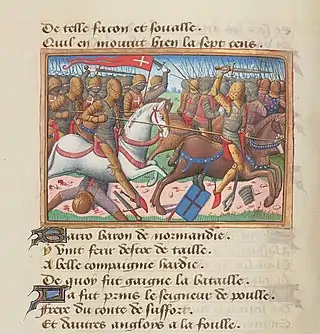 De telle facon et foualle.
Quil en mourut bien la sept cens.
Gato baron de normandie.
Y vint ferir destoc de taille.
A belle compaignie hardie.
De quoy fut gaigne la bataille.
La fut prins le seigneur de poulle.
Frere du conte de suffort.
Et dautres anglois a la foulle.